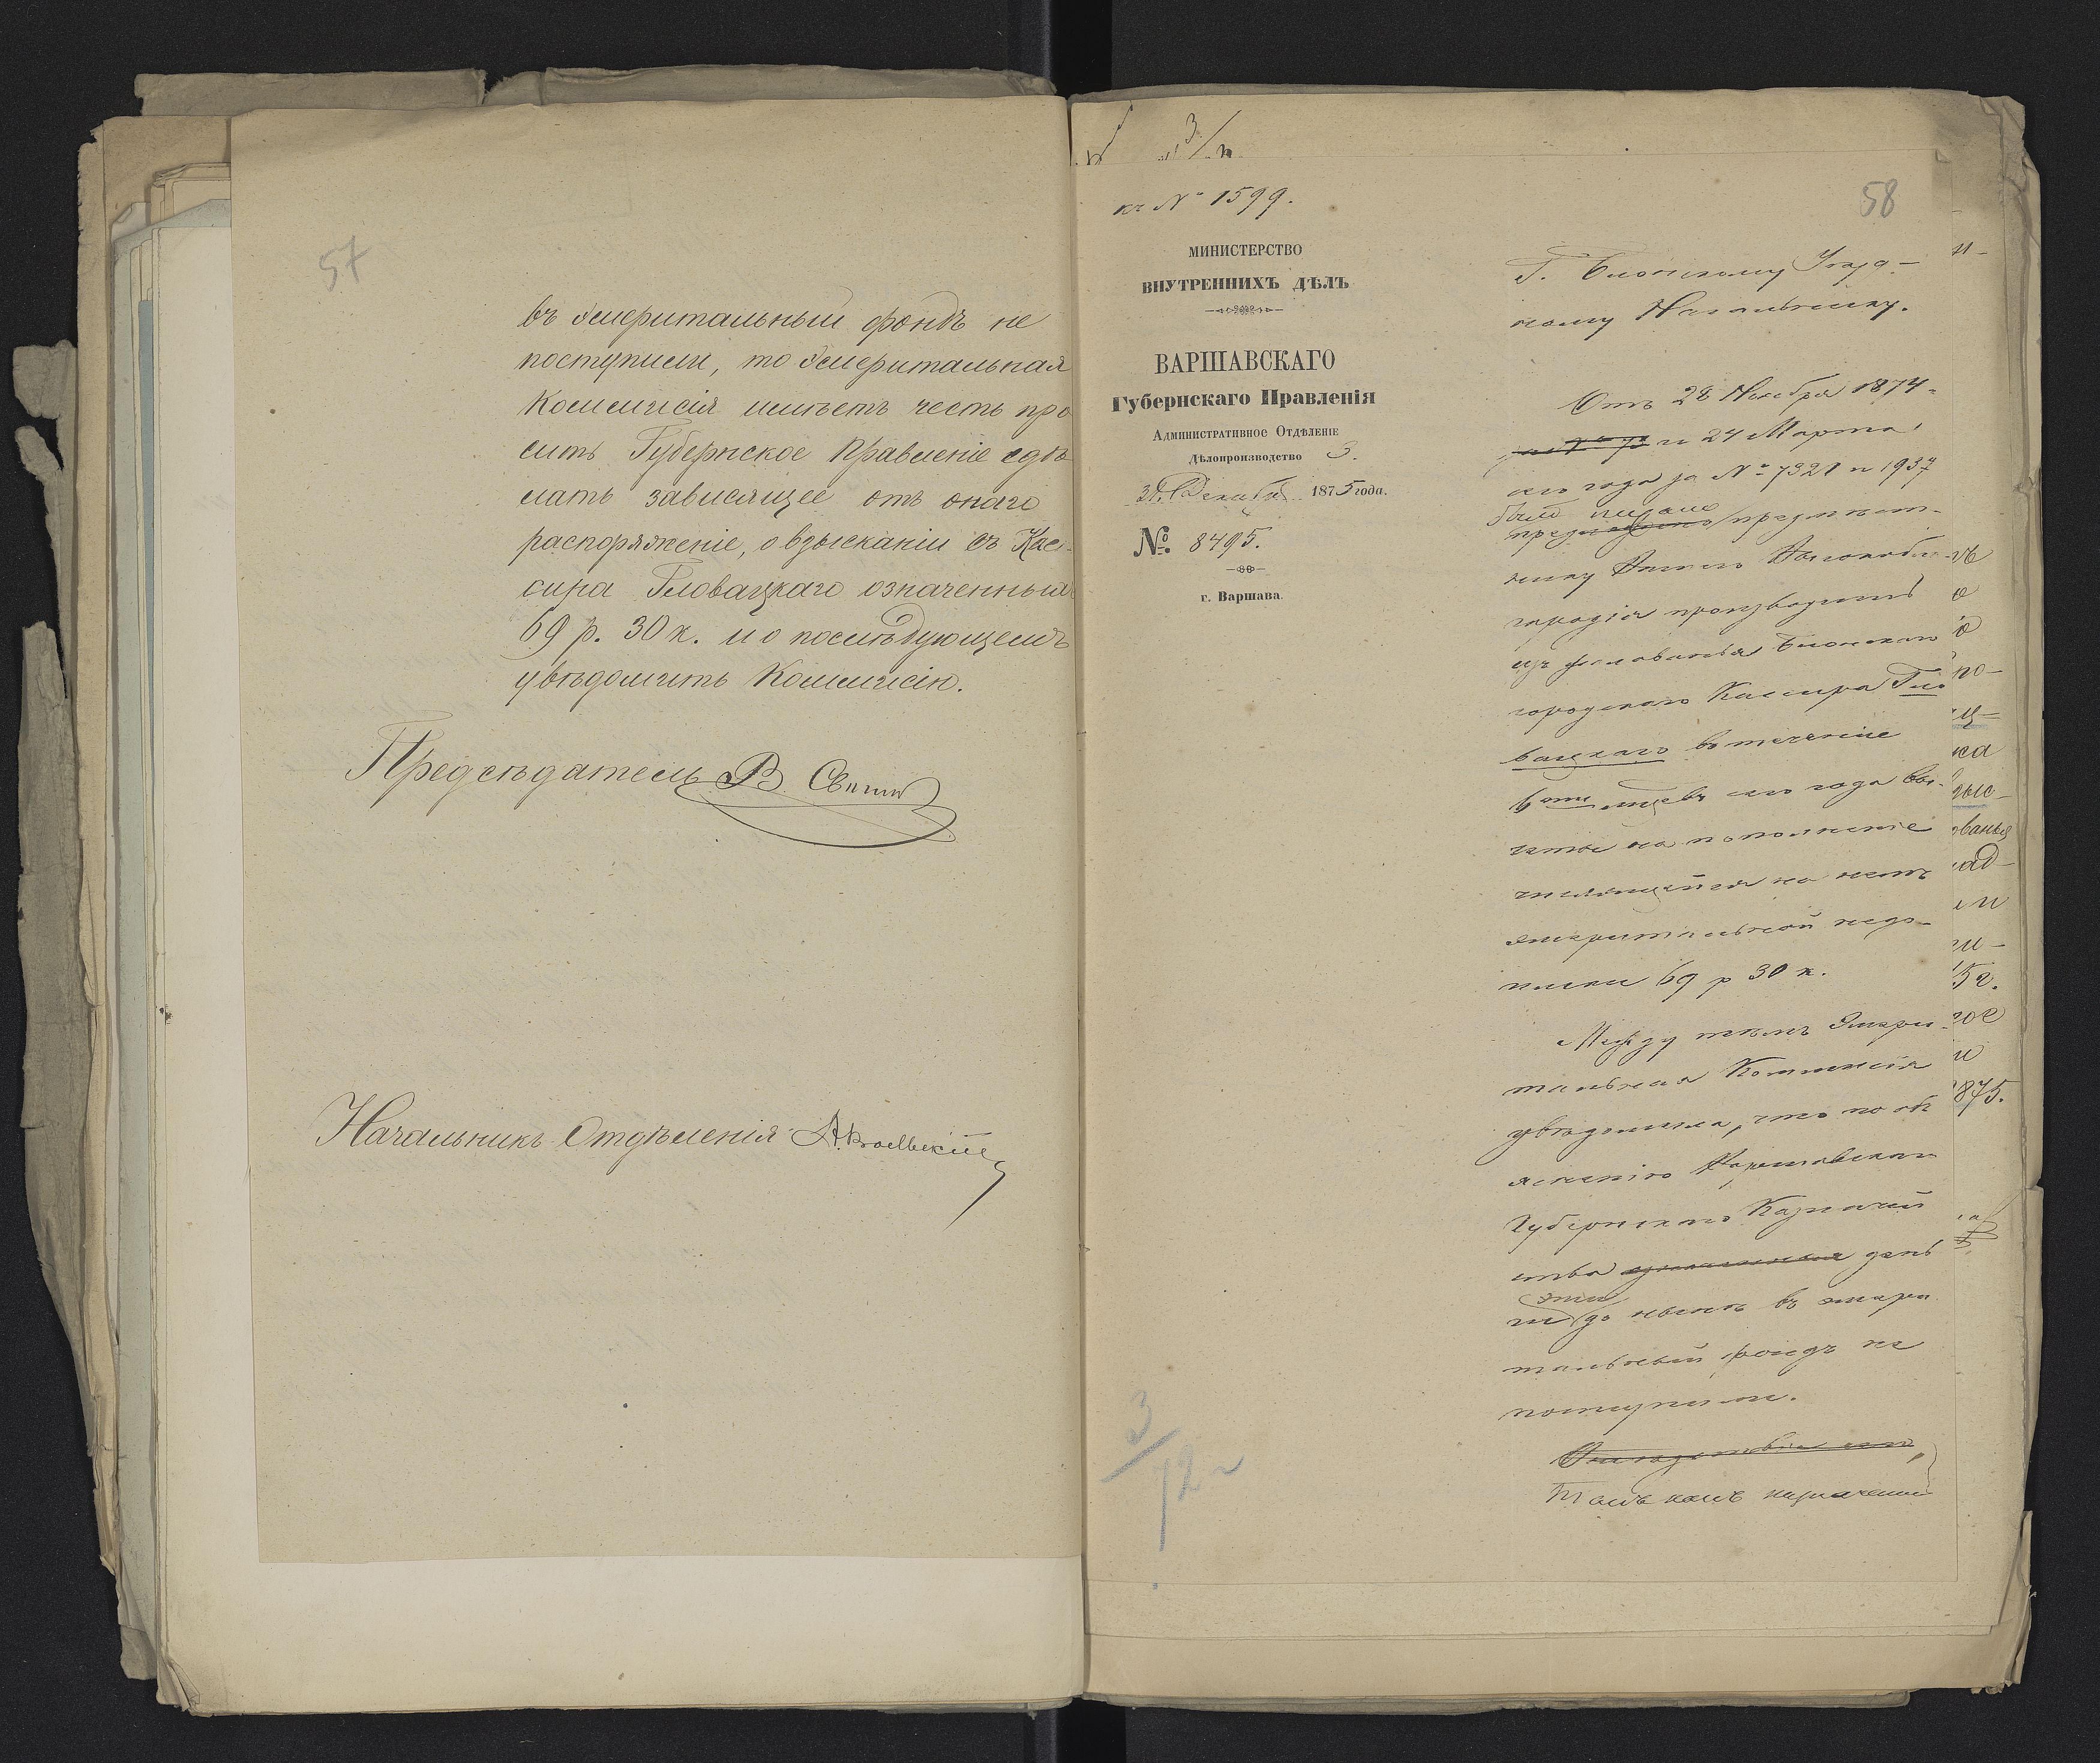 57
въ Эмеритальный фондъ не
поступили, то Эмеритальная
Коммисія имѣетъ честь про
сить Губернское Правленіе сдѣ
лать зависящее отъ онаго
распоряженіе, о взысканіи съ Кас-
сира Гловацкаго означенныя
69 р. 30 к. и о послѣдующемъ
увѣдомить Коммисію.
Предсѣдатель В.
Начальникъ Отдѣленія
3/
къ № 1599.
МИНИСТЕРСТВО
ВНУТРЕННИХЪ ДѢЛЪ
ВАРШАВСКАГО
Губернскаго Правленія
Административное Отдѣленіе
Дѣлопроизводство 3.
31 Декабря 1875 года.
№ 8495.
г. Варшава.
3/12
58
Г. Блонскому Уѣзд-
ному Начальнику.
Отъ 28 Ноября 1874
и 24 Марта
сего года за № 7321 и 1937
было
предмѣст-
нику Вашего Высокобла-
городія производить
изъ жалованья Блонскаго
городскаго Кассира Гло
вацкаго въ теченіе
6ти мцевъ сего года вы-
четы на пополненіе
числящейся на немъ
эмеритальной недо-
имки 69 р 30 к.
Между тѣмъ Эмери-
тальная Коммисія
увѣдомила, что по объ
ясненію Варшавскаго
Губернскаго Казначей
ства день
ги эти до нынѣ въ эмери
тальный фондъ не
поступили.
Такъ какъ
875.